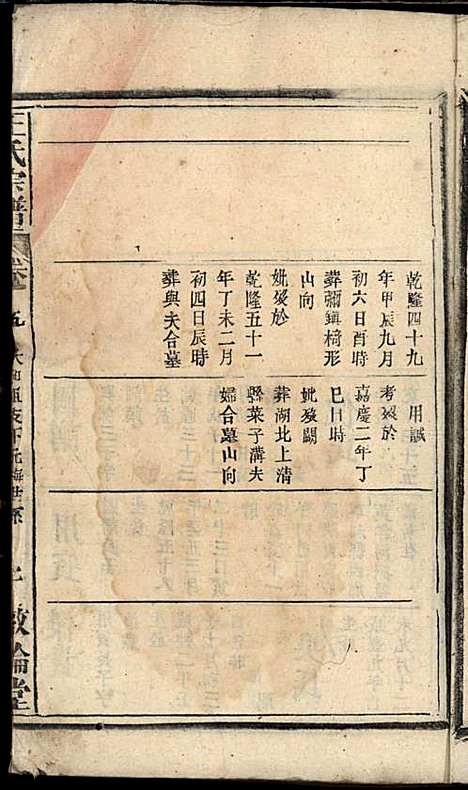 乾隆四十九
年甲辰九月
初六日酉時
葬彌鎮椅形
山向
妣歿於
乾隆五十一
年丁未二月
初四日辰時
葬與夫合墓
用誠
考歿於
嘉慶二年丁
巳日時
妣歿闕
葬湖北上清
縣菜子溝夫
婦合墓山向
王氏宗譜
卷
五
敦倫堂